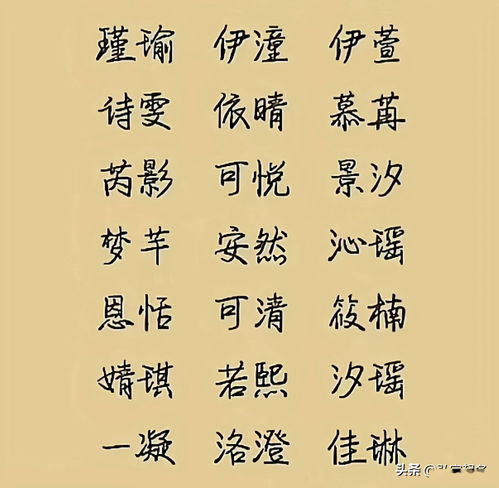 瑾瑜 伊潼 伊萱
诗雯 依晴 慕苒
芮影 可悦 景汐
梦芊 安然 沁瑶
恩恬 可清 筱楠
婧琪 若熙 汐瑶
一凝 洛澄 佳琳
头条